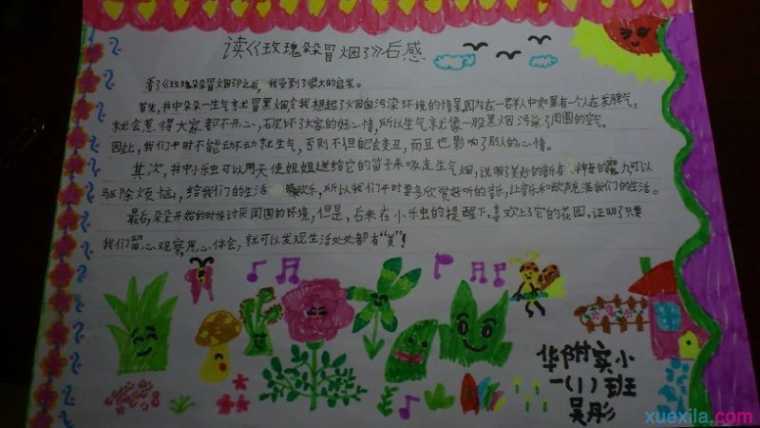 读《玫瑰朵冒烟了》后感
看了《玫瑰朵冒烟了》之后，我受到了很大的启发。
首先，书中朵朵一生气就冒黑烟令我想起了火山的污染环境的情景，因为在一群人中如果有一个人在发脾气，
就会惹得大家都不开心，破坏了大家的好心情，所以生气就像一股黑烟污染了周围的空气。
因此，我们平时不能动不动就生气，否则不但自己会变丑，而且也影响了别人的心情。
其次，书中小乐虫可以用天使姐姐送给它的笛子来吸走生气烟，说明了美妙的音乐 神奇的魔力可以
驱除烦恼，给我们的生活 欢乐，所以我们平时要多欣赏好听的音乐，让音乐和歌声充满我们的生活。
最后，朵朵开始的时候讨厌周围的环境，但是，后来在小乐虫的提醒下，喜欢上了它的花园，证明了只要
我们留心观察，用心体会，就可以发现生活处处都有“美”！
华附实小
一（1）班
吴彤
xuexila.com